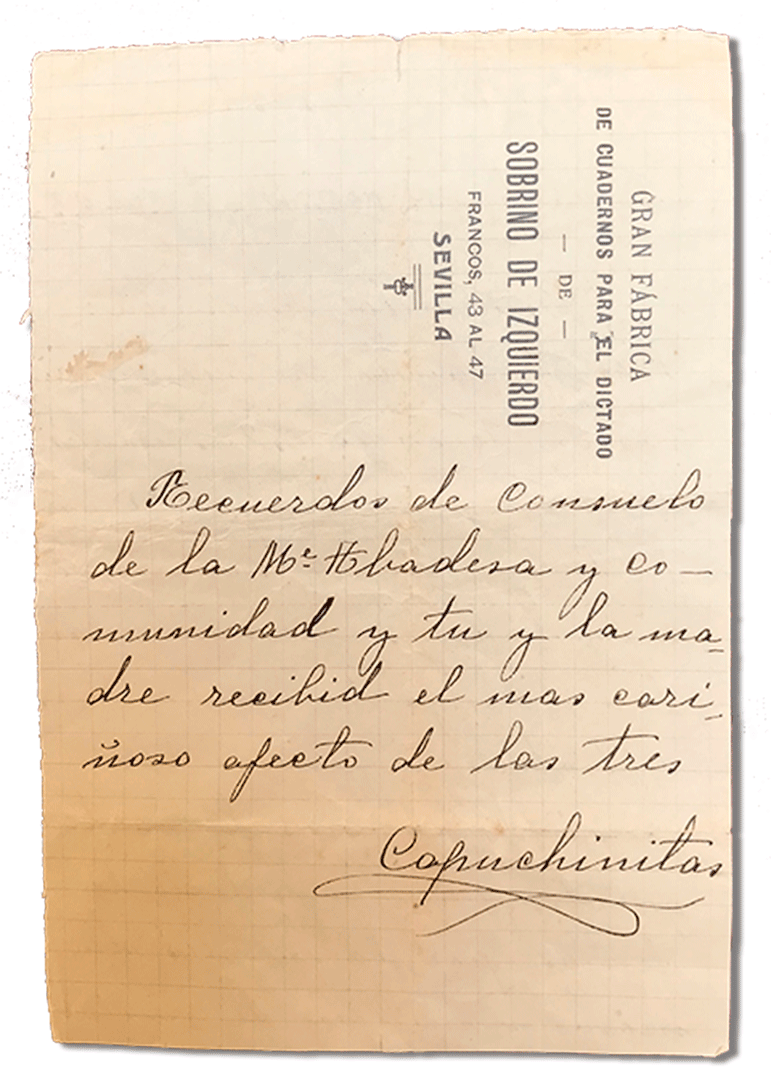 GRAN FÁBRICA
DE CUADERNOS PARA EL DICTADO
— DE —
SOBRINO DE IZQUIERDO
FRANCOS, 43 AL 47
SEVILLA
Recuerdos de Consuelo
de la Mᵉ Abadesa y co —
munidad y tu y la ma-
dre recibid el mas cari-
ñoso afecto de las tres
Capuchinitas